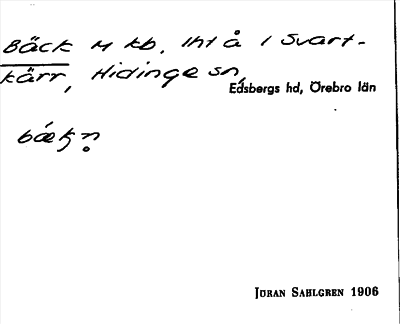 Bäck M kb. Int å i Svart-
kärr, Hidinge sn,
Edsbergs hd, Örebro län
Jöran Sahlgren 1906